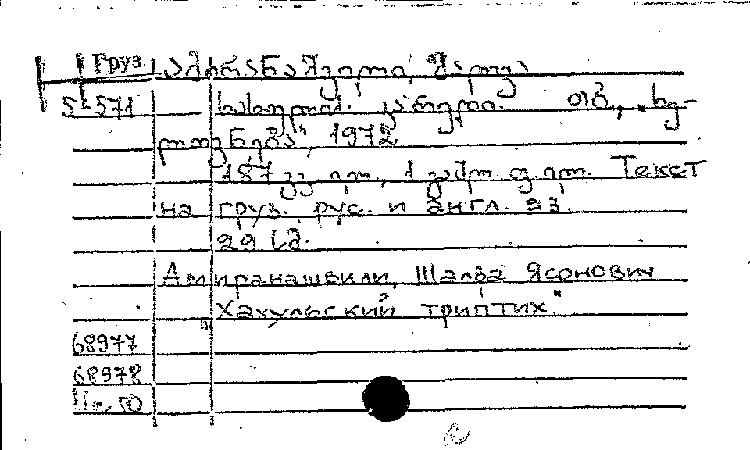 Груз ამირანაშვილი, შალვა
5-571 ხახულის კარედი. თბ., „ხე-
ლოვნება“, 1972
187 გვ. ილ., 1 გამლ. ფ. ილ. Текст
на груз. рус. и англ. яз.
29 სმ.
Амиранашвили, Шалва Ясонович
"Хахульский триптих"
68977
68978